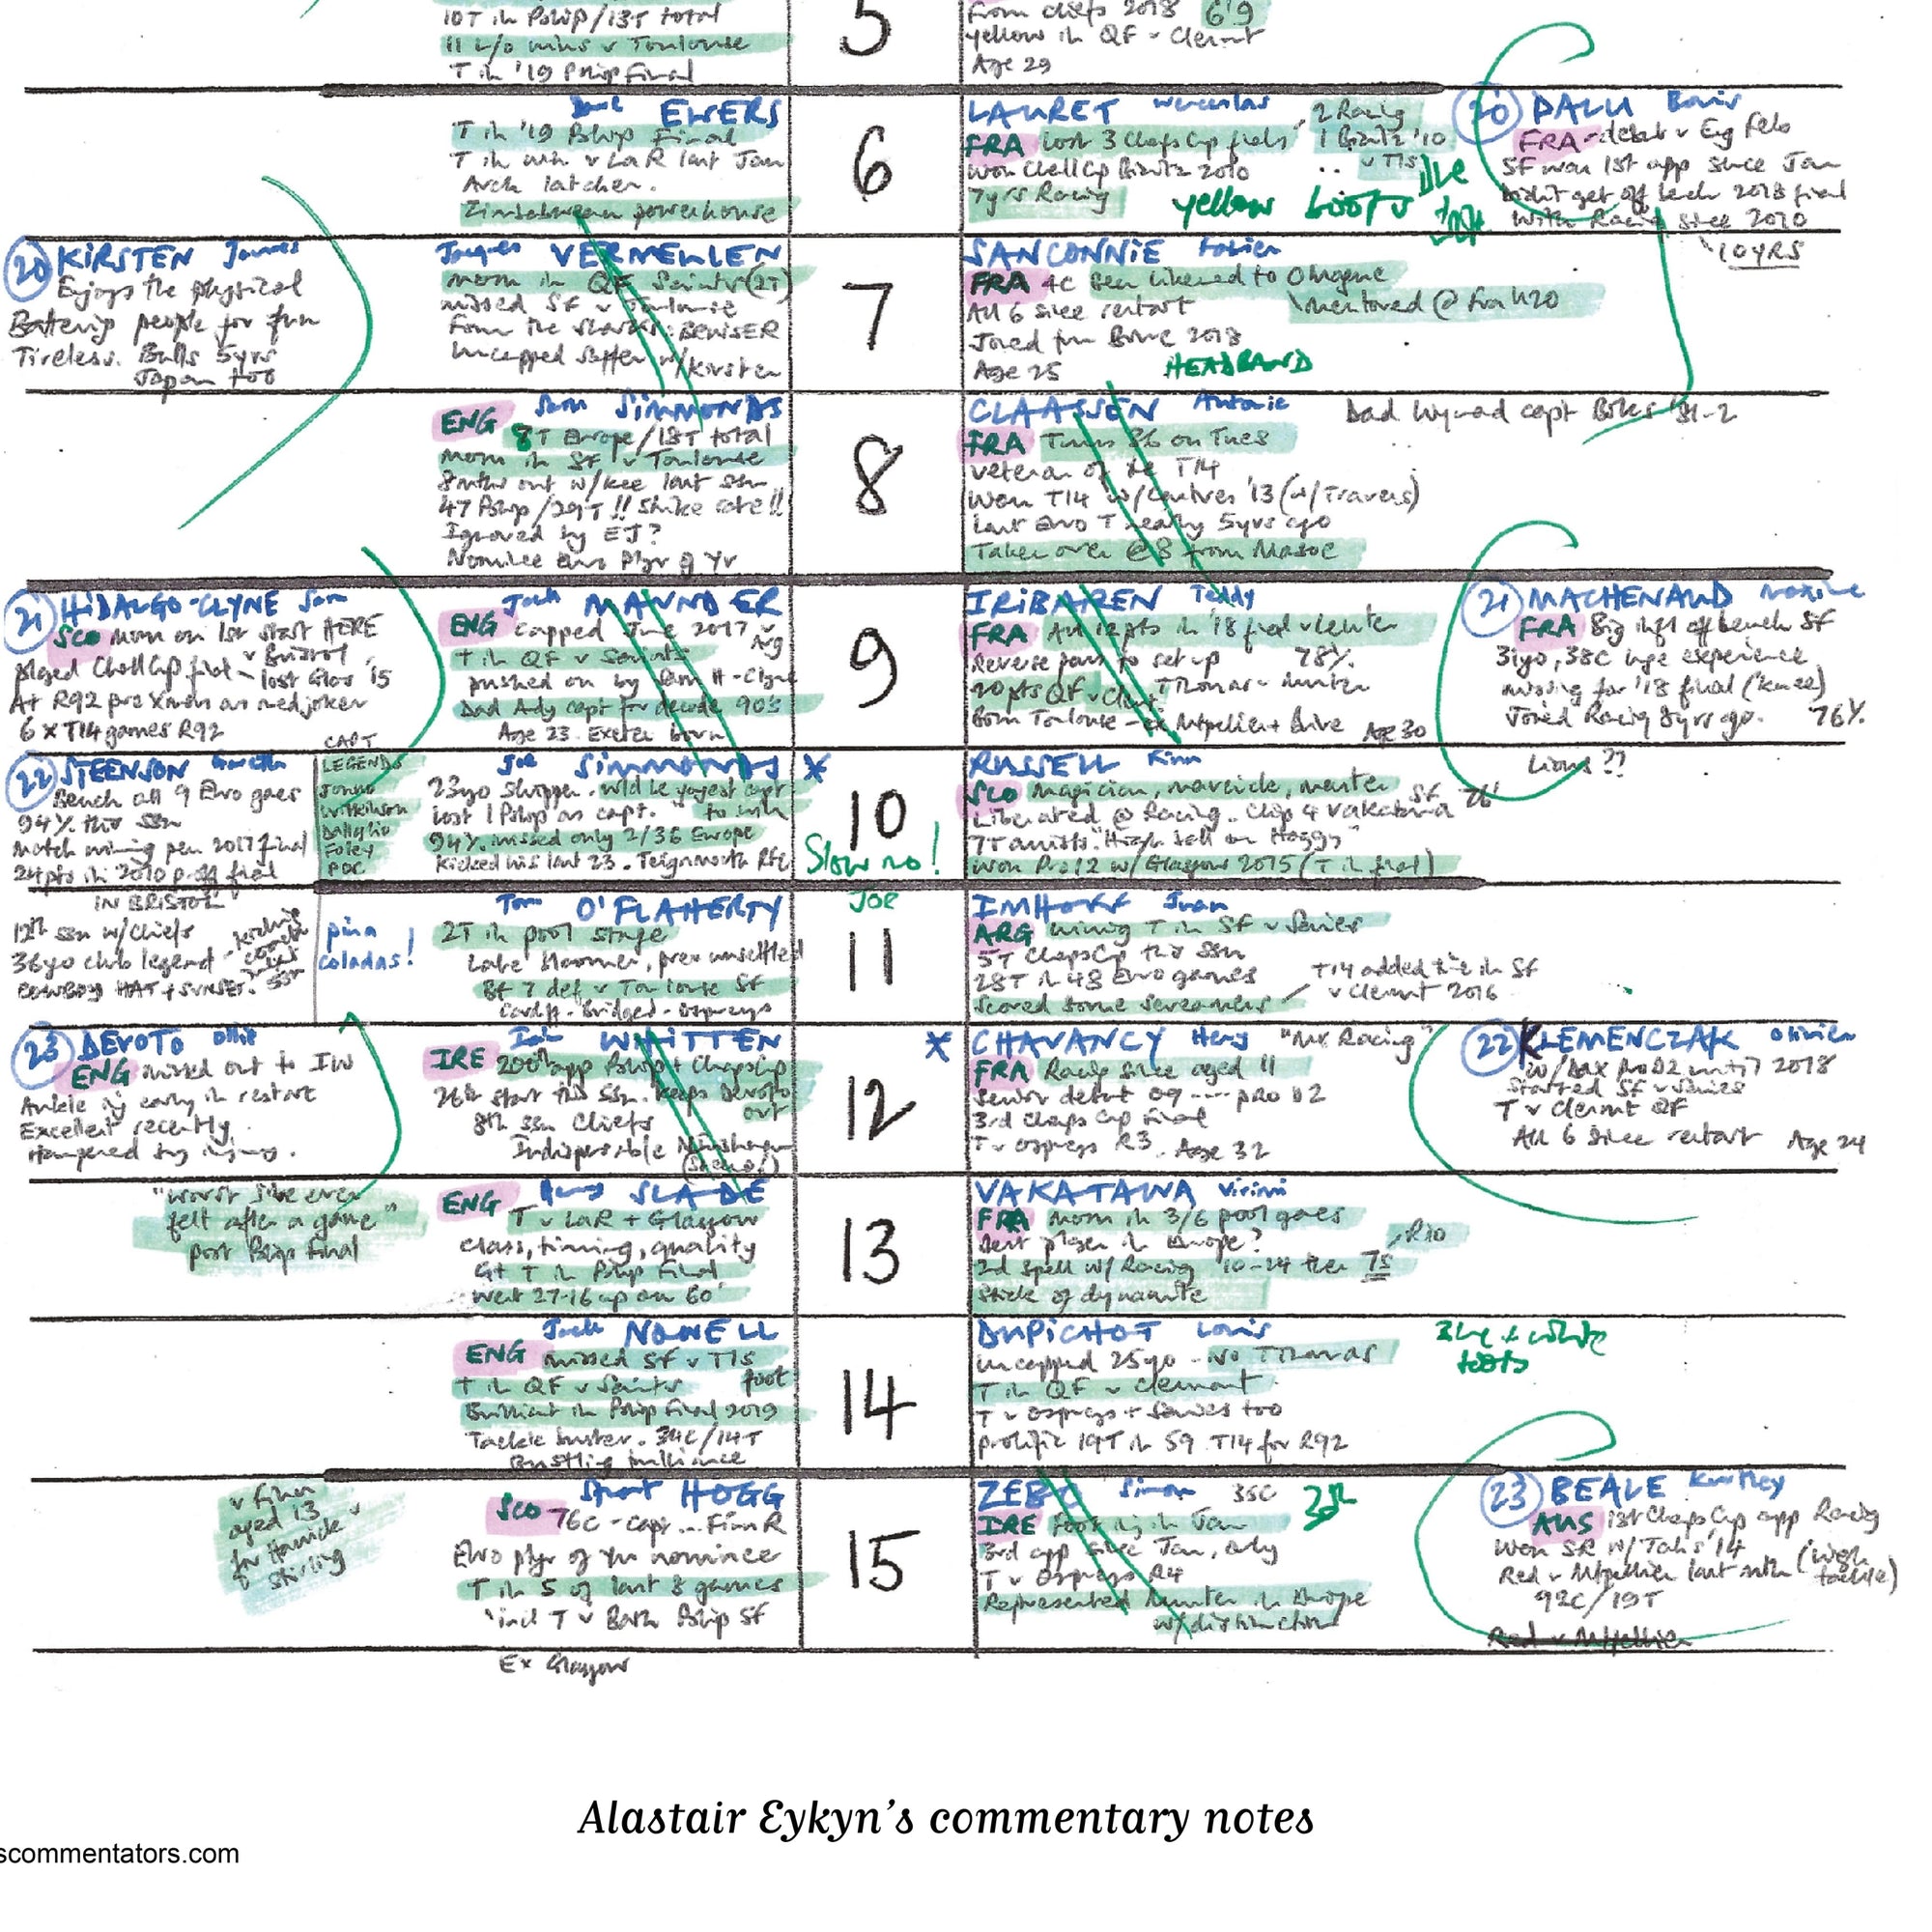 10T in P'ship/13T total
11 L/o wins v Toulouse
T in '19 P'ship Final
5
From Chiefs 2018 6'9
yellow in QF v Clermt
Age 29
Dave EWERS
T in '19 P'ship Final
T in win v LaR last Jan
Arch latcher.
Zimbabwean powerhouse
6
LAURET Wenceslas
FRA lost 3 Champs Cup finals
2 Racing
1 Biarritz '10
v Tls
Won Chall Cp Biarritz 2010
7yrs Racing
yellow boots
20 PALU Boris
FRA - debut v Eng Feb
SF was 1st app since Jan
Didn't get off bench 2018 final
With Racing since 2010
10YRS
20 KIRSTEN Jannes
Enjoys the physical
Battering people for fun
Tireless. Bulls 5yrs
Japan too
Jacques VERMEULEN
mom in QF Saints (2T)
missed SF v Toulouse
From the Sharks: BRUISER
Uncapped Saffer w/Kirsten
7
SANCONNIE Fabien
FRA 4C Been likened to
mentored @ Fra U20
All 6 since restart
Joined from Brive 2018
Age 25 HEADBAND
Sam SIMMONDS
ENG 8T Europe/18T total
mom in SF v Toulouse
8mths out w/knee last ssn
47 P'ship/29T!! Strike rate!!
Ignored by EJ?
Nominee Euro Plyr of Yr
8
CLAASSEN Antonie
Dad Wynand capt Boks '81-2
FRA Turns 36 on Tues
Veteran of the T14
Won T14 w/Castres '13 (w/Travers)
Last Euro T nearly 5yrs ago
Taken over @ 8 from Masoe
21 HIDALGO-CLYNE Sam
SCO mom on 1st start HERE
v Bristol
played Chall Cup final - lost Glos '15
At R92 pre Xmas as med joker
6 x T14 games R92
Jack MAUNDER
ENG capped June 2017 v Arg
T in QF v Saints
pushed on by Sam H-Clyne
Dad Ady capt for decade 90's
Age 23. Exeter born
9
IRIBAREN Teddy
FRA All 12pts in '18 final v Leinster
Reverse pass to set up 78%
20pts QF v Clermt Thomas - Munster
Born Toulouse - ex Mtpellier + Brive Age 30
21 MACHENAUD Maxime
FRA Big infl off bench SF
31yo, 38C huge experience
missing for '18 final (knee)
Joined Racing 8yrs ago. 76%
22 STEENSON Gareth
Bench all 9 Euro games
94% this ssn
Match winning pen 2017 final
24pts in 2010 p-off final
IN BRISTOL
12th ssn w/Chiefs
36yo club legend
COWBOY HAT + SUNSET.
CAPT
LEGENDS
Jonno
Wilkinson
Dallaglio
Foley
POC
Joe SIMMONDS
23yo skipper. wld be yngest capt
to win
lost 1 P'ship as capt.
94%. missed only 2/36 Europe
Kicked his last 23. Teignmouth RFC
10
Slow no!
RUSSELL Finn
Lions??
SCO Magician, maverick, master
Liberated @ Racing. Chip 4 Vakatawa
7T assists. "High ball on Hoggy"
Won Pro12 w/ Glasgow 2015 (T in final)
pina
coladas!
Tom O'FLAHERTY
2T in pool stage
Late bloomer, prev unsettled
Bt 7 def v Toulouse SF
Cardiff - Bridgend - Ospreys
JOE
11
IMHOFF Juan
ARG winning T in SF v Saries
5T ChapsCp this ssn
28T in 48 Euro games
Scored some screamers
T14 added time in SF
v Clermt 2016
23 DEVOTO Ollie
ENG missed out to IW
Ankle inj early in restart
Excellent recently.
Hampered by injury.
Ian WHITTEN
IRE 200th app P'ship + ChapsCup
26th start this ssn. Keeps Devoto out
8th ssn Chiefs
Indispensable
12
CHAVANCY Henry "Mr Racing"
FRA Racing since aged 11
Senior debut 09 ---- PRO D2
3rd Chaps Cup Final
T v Ospreys R3. Age 32
22 KLEMENCZAK Olivier
w/Dax ProD2 until 2018
Started SF v Saries
T v Clermt QF
All 6 since restart Age 24
"Worst I've ever
felt after a game"
post P'ship Final
Henry SLADE
ENG T v LaR + Glasgow
Class, timing, quality
Gt T in P'ship Final
Went 27-16 up on 60'
13
VAKATAWA Virimi
FRA mom in 3/6 pool games
Best player in Europe?
2nd spell w/ Racing '10-14 then 7s
Rio
Stick of dynamite
Jack NOWELL
ENG missed SF v Tls
foot
T in QF v Saints
Brilliant in P'ship Final 2019
Tackle buster. 34C/14T
Bustling brilliance
14
DUPICHOT Louis
Uncapped 25yo - No Thomas
T in QF v Clermont
T v Ospreys + Saries too
prolific 19T in 59 T14 for R92
Blue + white
boots
v Finn
aged 13
for Hawick v
Stirling
Stuart HOGG
SCO 76C - capt... Finn R
Euro plyr of yr nominee
T in 5 of last 8 games
incl T v Bath P'ship SF
Ex Glasgow
15
ZEBO Simon 35C
IRE Foot inj in Jan
3rd app since Jan, only
T v Ospreys R4
Represented Munster in Europe
w/distinction
23 BEALE Kurtley
AUS 1st Chaps Cup app Racing
Won SR w/Tahs '14
Red v Mtpellier last mth (high tackle)
92C/19T
Red v Mtpellier
Alastair Eykyn's commentary notes
scommentators.com